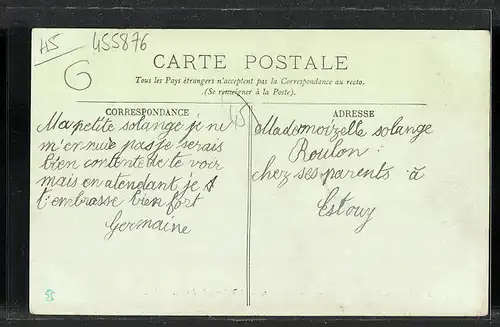 45
455876
G
CARTE POSTALE
Tous les Pays étrangers n'acceptent pas la Correspondance au recto.
(Se renseigner à la Poste).
CORRESPONDANCE
Ma petite solange je ne
m'ennuie pas je serais
bien contente de te voir
mais en atendant je
t'embrasse bien fort
Germaine
45
ADRESSE
Mademoizelle solange
Roulon
chez ses parents à
Estouy